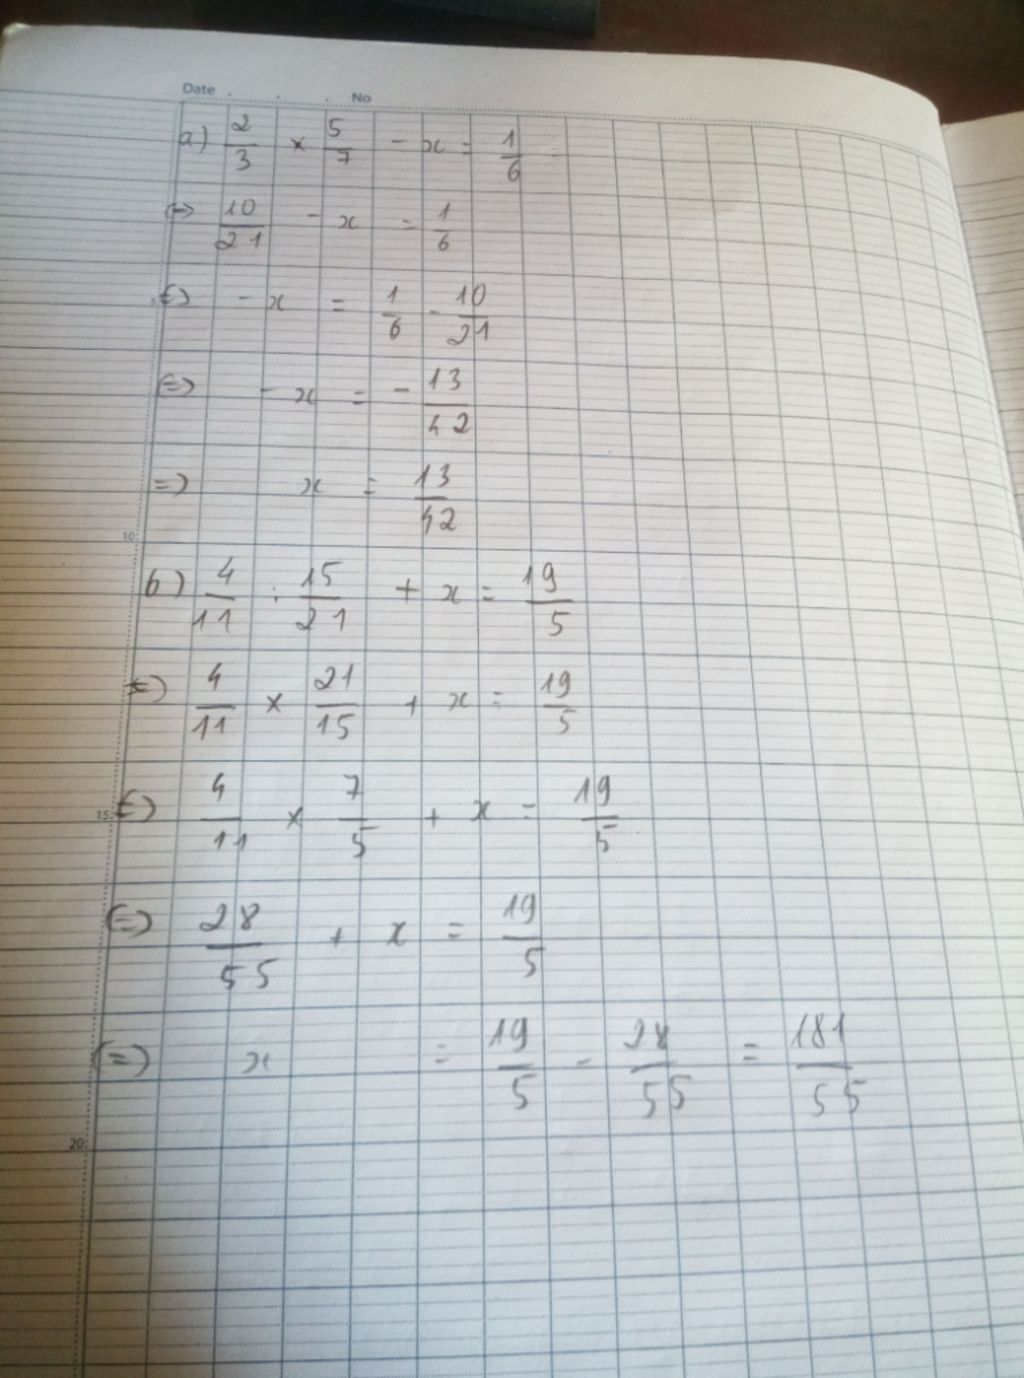 Date No
a) 2/3 × 5/7 - x = 1/6
(=) 10/21 - x = 1/6
(=) - x = 1/6 - 10/21
(=) - x = - 13/42
=) x = 13/42
10
b) 4/11 : 15/21 + x = 19/5
(=) 4/11 × 21/15 + x = 19/5
15
(=) 4/11 × 7/5 + x = 19/5
(=) 28/55 + x = 19/5
(=) x = 19/5 - 28/55 = 181/55
20